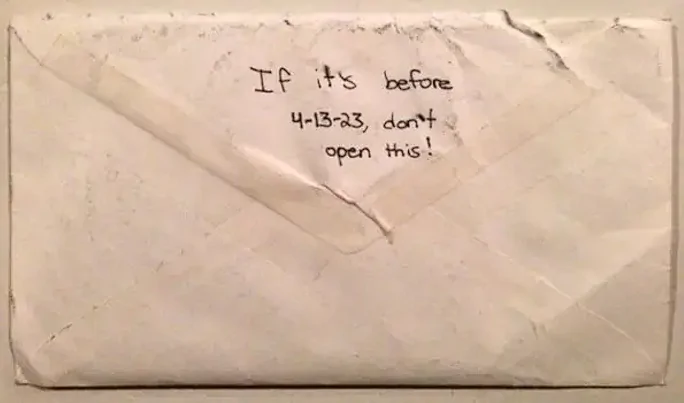 If it's before
4-13-23, don't
open this!